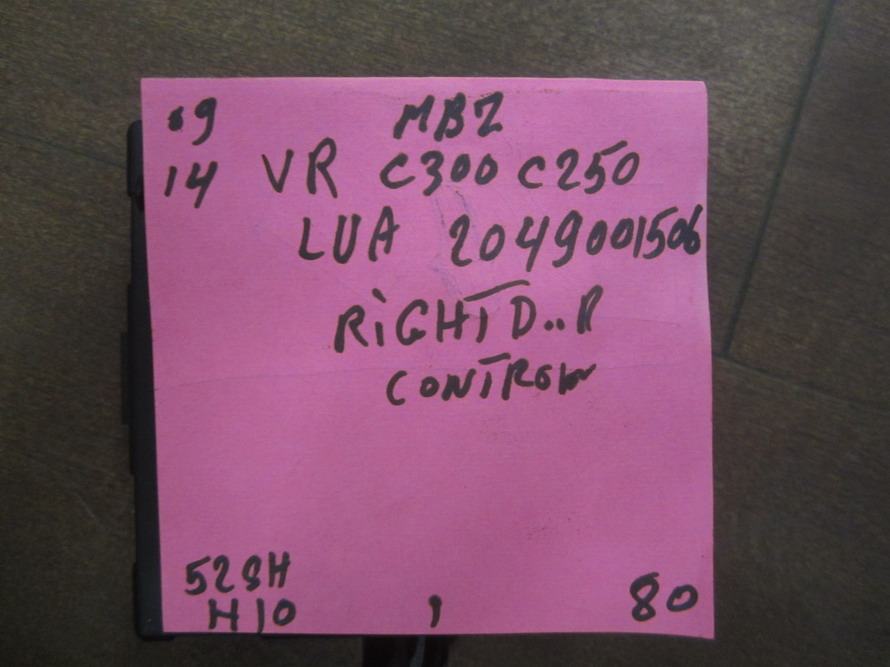 09 MBZ
14 VR C300 C250
LUA 2049001506
RiGHT D..R
CONTROL
528H
H10 1 80